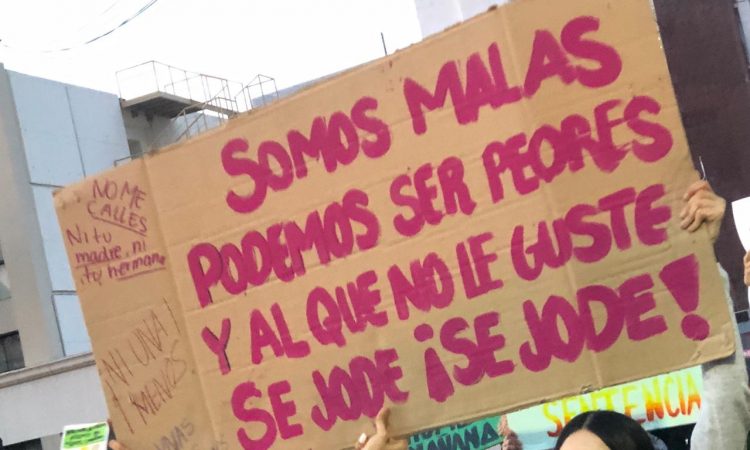 SOMOS MALAS
PODEMOS SER PEORES
Y AL QUE NO LE GUSTE
SE JODE ¡SE JODE!
NO ME
CALLES
Ni tu
madre, ni
tu hermana
¡NI UNA
MENOS!
MAÑANA
SENTENCIA